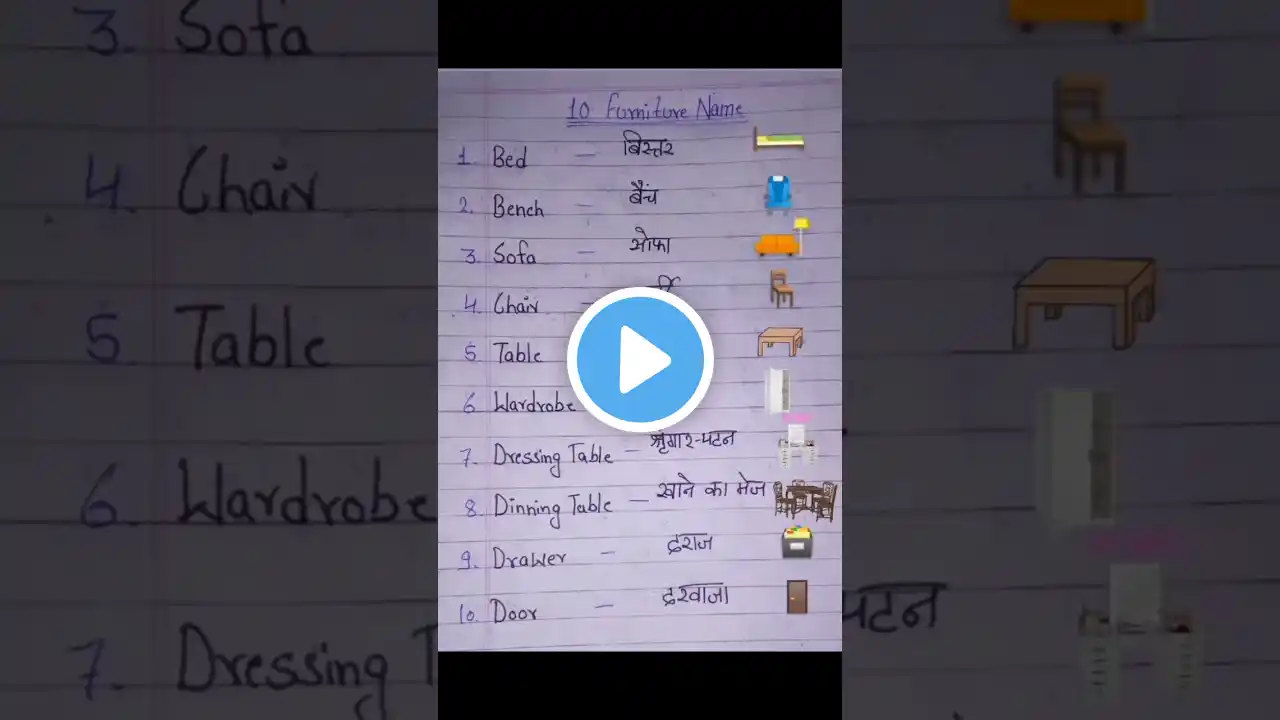 10 Furniture Name
1. Bed – बिस्तर
2. Bench – बैंच
3. Sofa – सोफा
4. Chair –
5. Table
6. Wardrobe
7. Dressing Table – श्रृंगार-पटन
8. Dinning Table – खाने का मेज
9. Drawer – दराज
10. Door – दरवाजा
3. Sofa
4. Chair
5. Table
6. Wardrobe
7. Dressing T
पटन